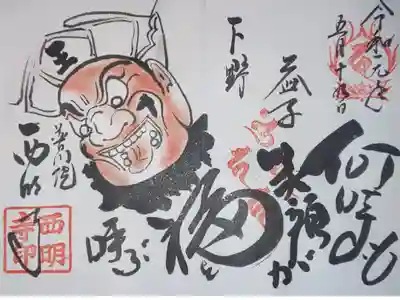 令和元年
五月十五日
何時も
笑顔が
福を
呼ぶ
益子
下野
王
普門院
西明寺
西明
寺印